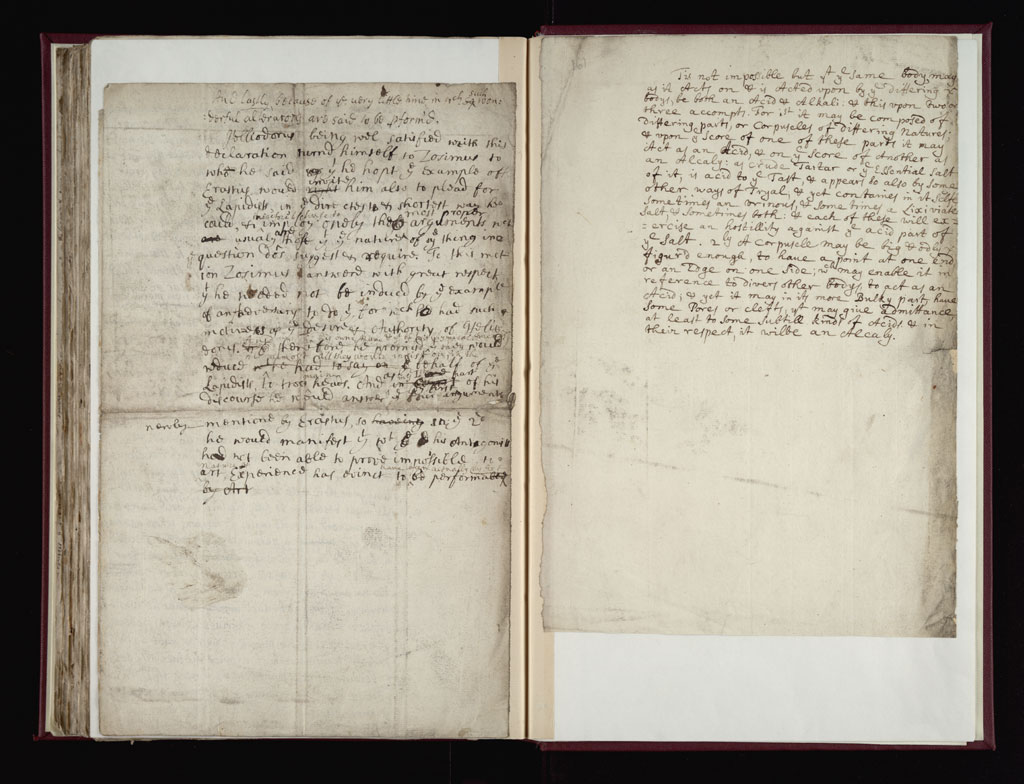 And lastly because of ye very little time in wch such won:
derful alterations are said to be pformd.
Heliodorus being wel satisfied with this
declaration turnd himself to Zosimus to
whom he said yt he hop't ye example of
Erastus, would invite him also to plead for
ye Lapidists, in ye directest & shortest way he
could, & imploy onely those arguments
usualy those yt ye nature of ye thing in
question dos suggest or require. To this mot
ion Zosimus answerd with great respect
yt he needed not be induced by ye example
of an adversary to do yt, for wch he had such
inclives as ye desire & Authority of Helio
dorus. & therefore he promisd
reduce he had to say on behalf of ye
Lapidists, to two heads. And in of his
discourse he would answer ye four arguments
newly mentiond by Erastus, so having in ye 2d
he would manifest yt wt his Antagonist
had not been able to prove impossible to
art, Experience has evinct to be performable
by Art
Tis not impossible but yt ye same body may
as it Acts on & is Acted upon by differing
bodys, be both an Acid & Alkali: & this upon two or
three accompts. For 1st it may be composed of
differing parts or Corpuscles of differing Natures;
& upon ye Score of one of these parts it may
Act as an Acid, & on ye Score of Another as
an Alcaly: as Crude Tartar or ye Essential Salt
of it, is acid to ye Tast, & appears so also by some
other ways of Tryal, & yet containes in it Self
sometimes an Urinous, & Sometimes a Lixiviate
Salt, & Sometimes both; & each of these will ex=
=ercise an hostility against ye acid part of
ye Salt. 2ly A Corpuscle may be big & odly
figur'd enough, to have a point at one end
or an Edge on one side, wch may enable it in
reference to divers other bodys to act as an
Acid; & yet it may in its more Bulky part, have
some Pores or clefts, yt may give admittance
at least to some Subtill kinds of Acids, & in
their respect, it wilbe an Alcaly.